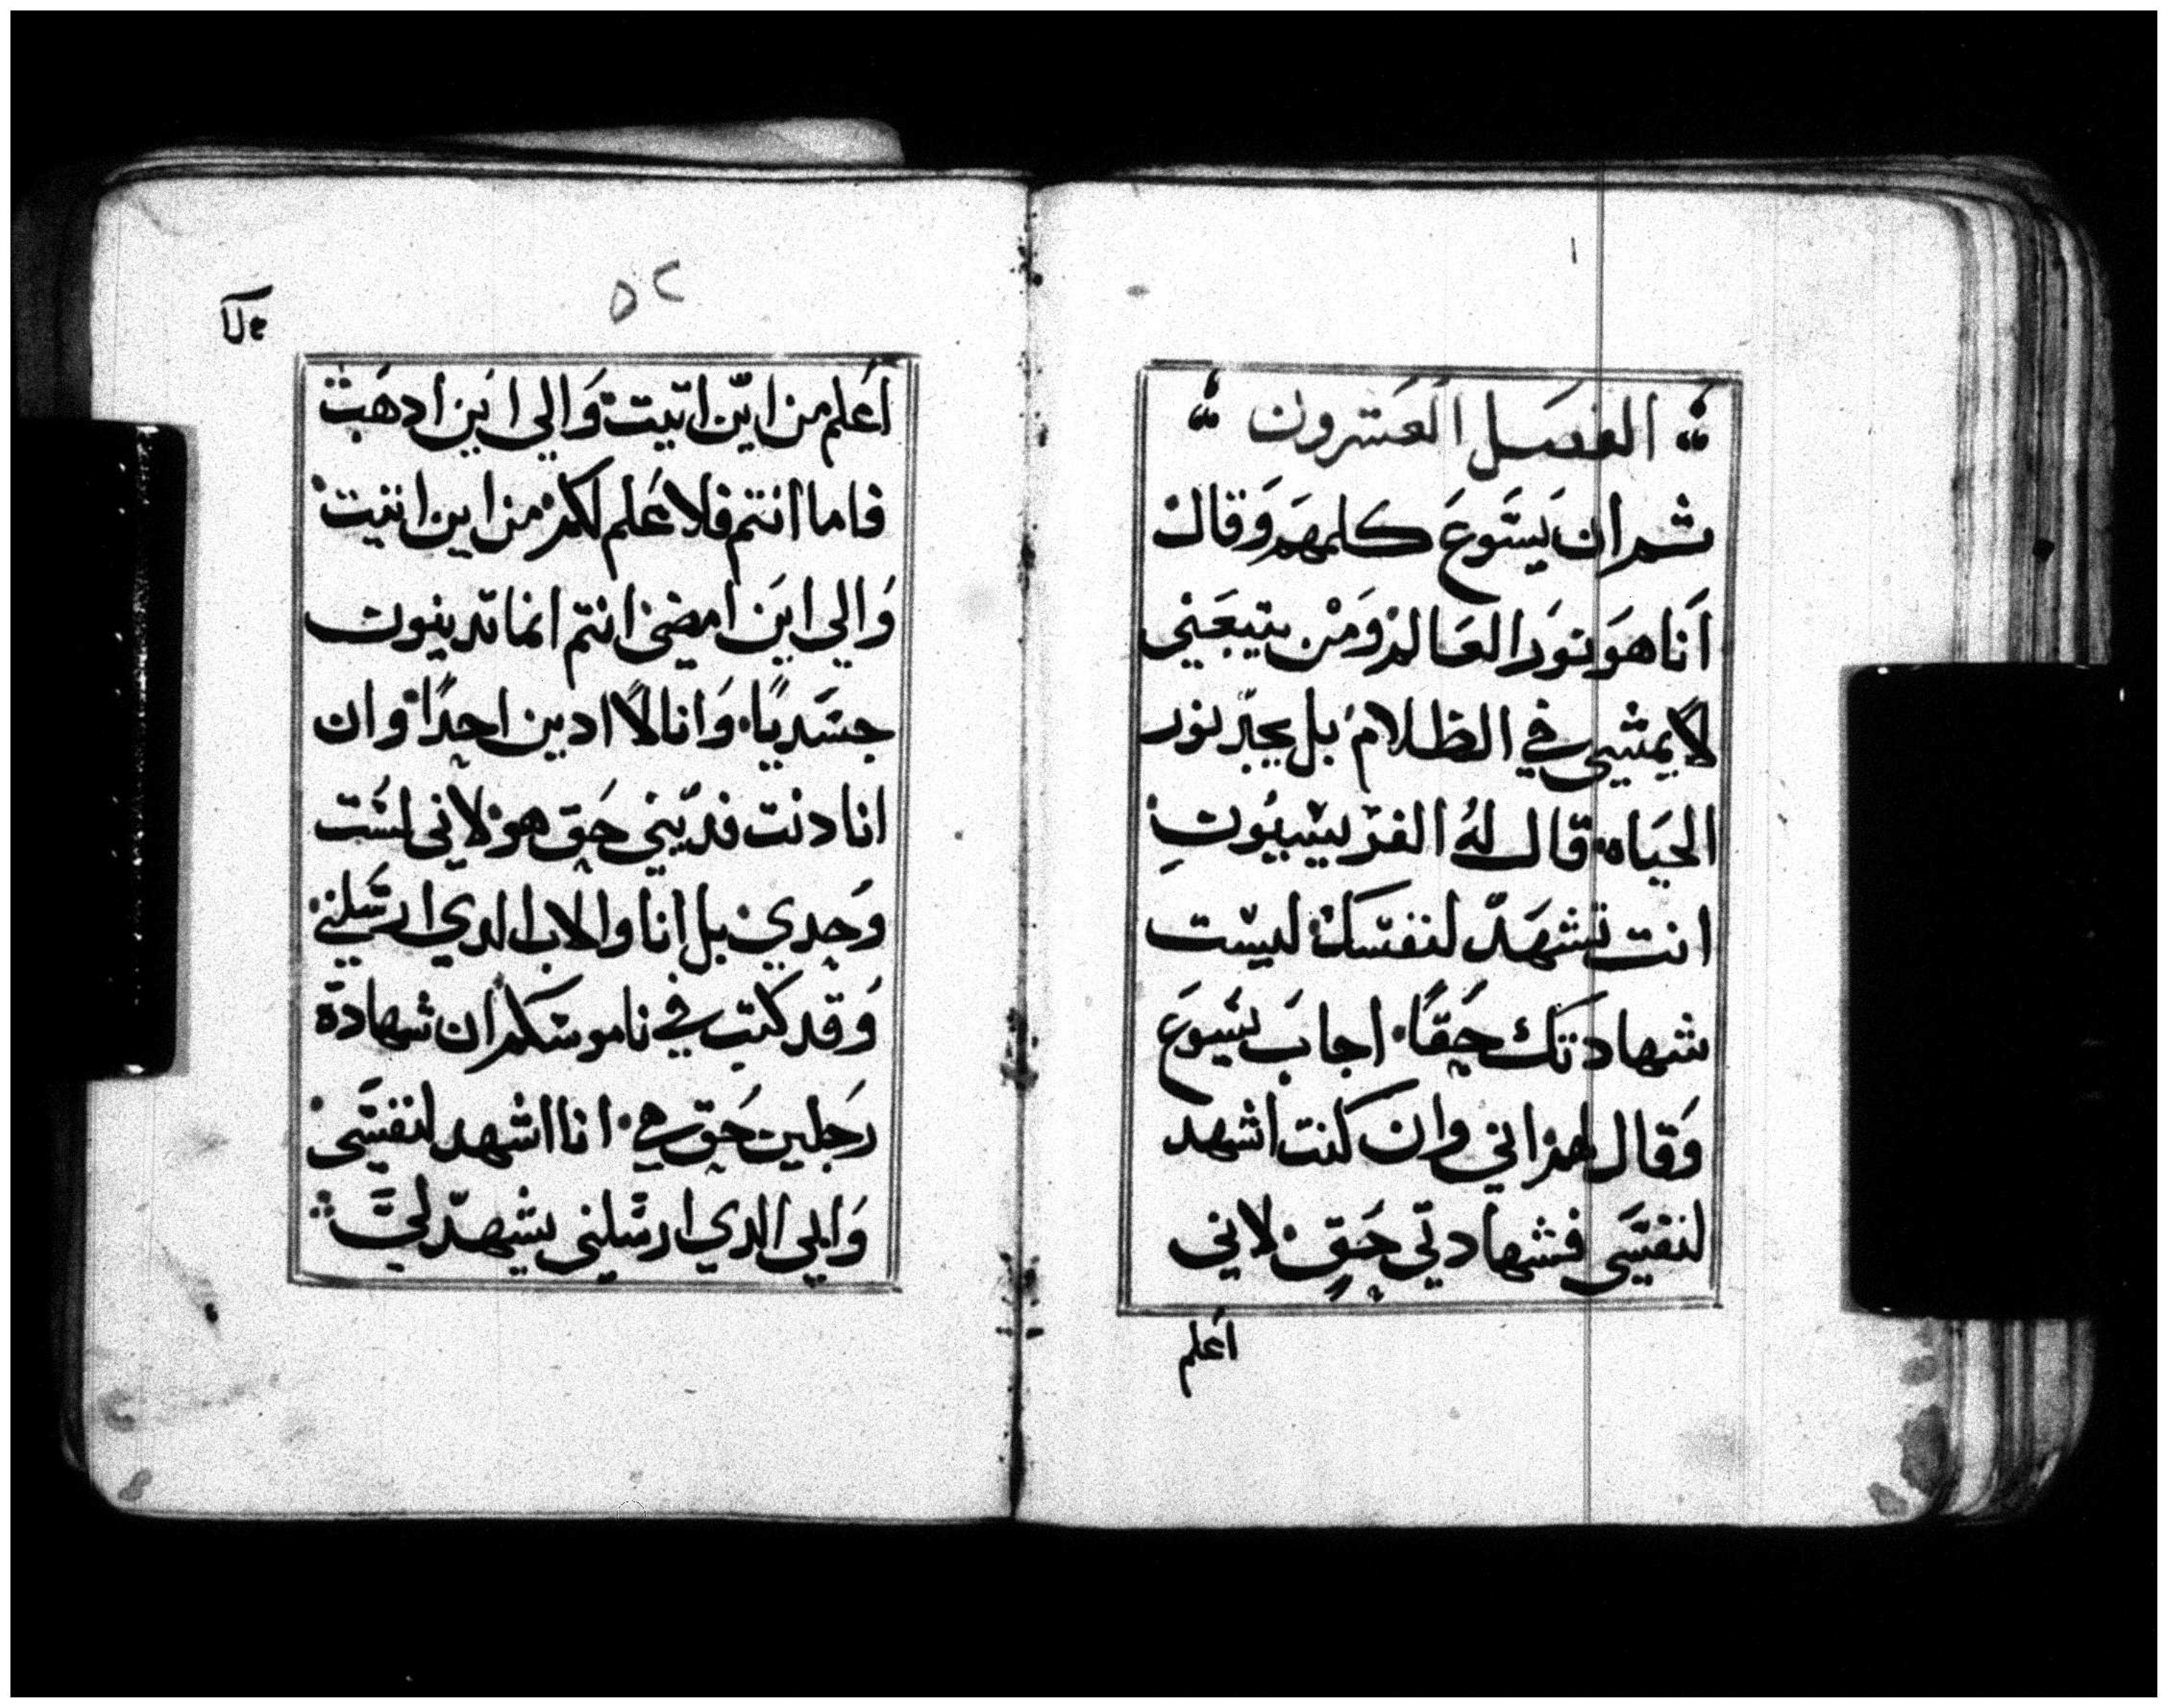 الفصل العشرون
ثم ان يسوع كلمهم وقال
انا هو نور العالم ومن يتبعني
لا يمشي في الظلام بل يجد نور
الحياه قال له الفريسيون
انت تشهد لنفسك ليست
شهادتك حقًا اجاب يسوع
وقال لهم اني وان كنت اشهد
لنفسي فشهادتي حق لاني
اعلم
٥٢
اعلم من اين اتيت والي اين ادهب
فاما انتم فلا علم لكم من اين اتيت
والي اين امضي انتم انما تدينون
جسديًا وانا لا ادين احدًا وان
انا دنت فديني حق هو لاني لست
وحدي بل انا والاب الدي ارسلني
وقد كتب في ناموسكم ان شهادة
رجلين حق هي انا اشهد لنفسي
وابي الدي ارسلني يشهد لي